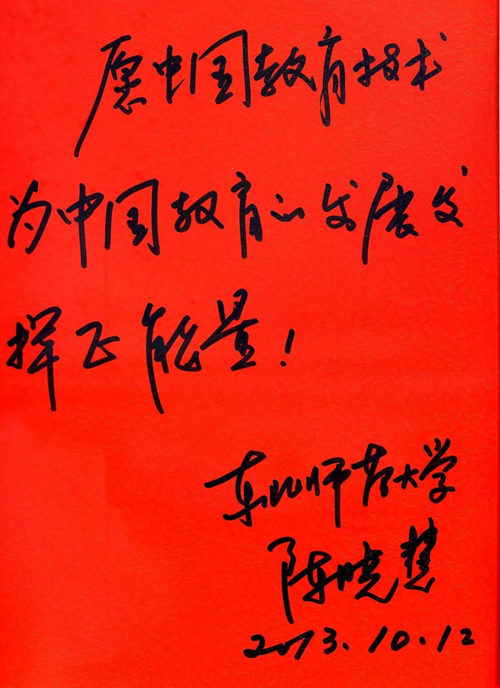 愿中国教育技术
为中国教育的发展发
挥正能量！
东北师范大学
陈晓慧
2013.10.12